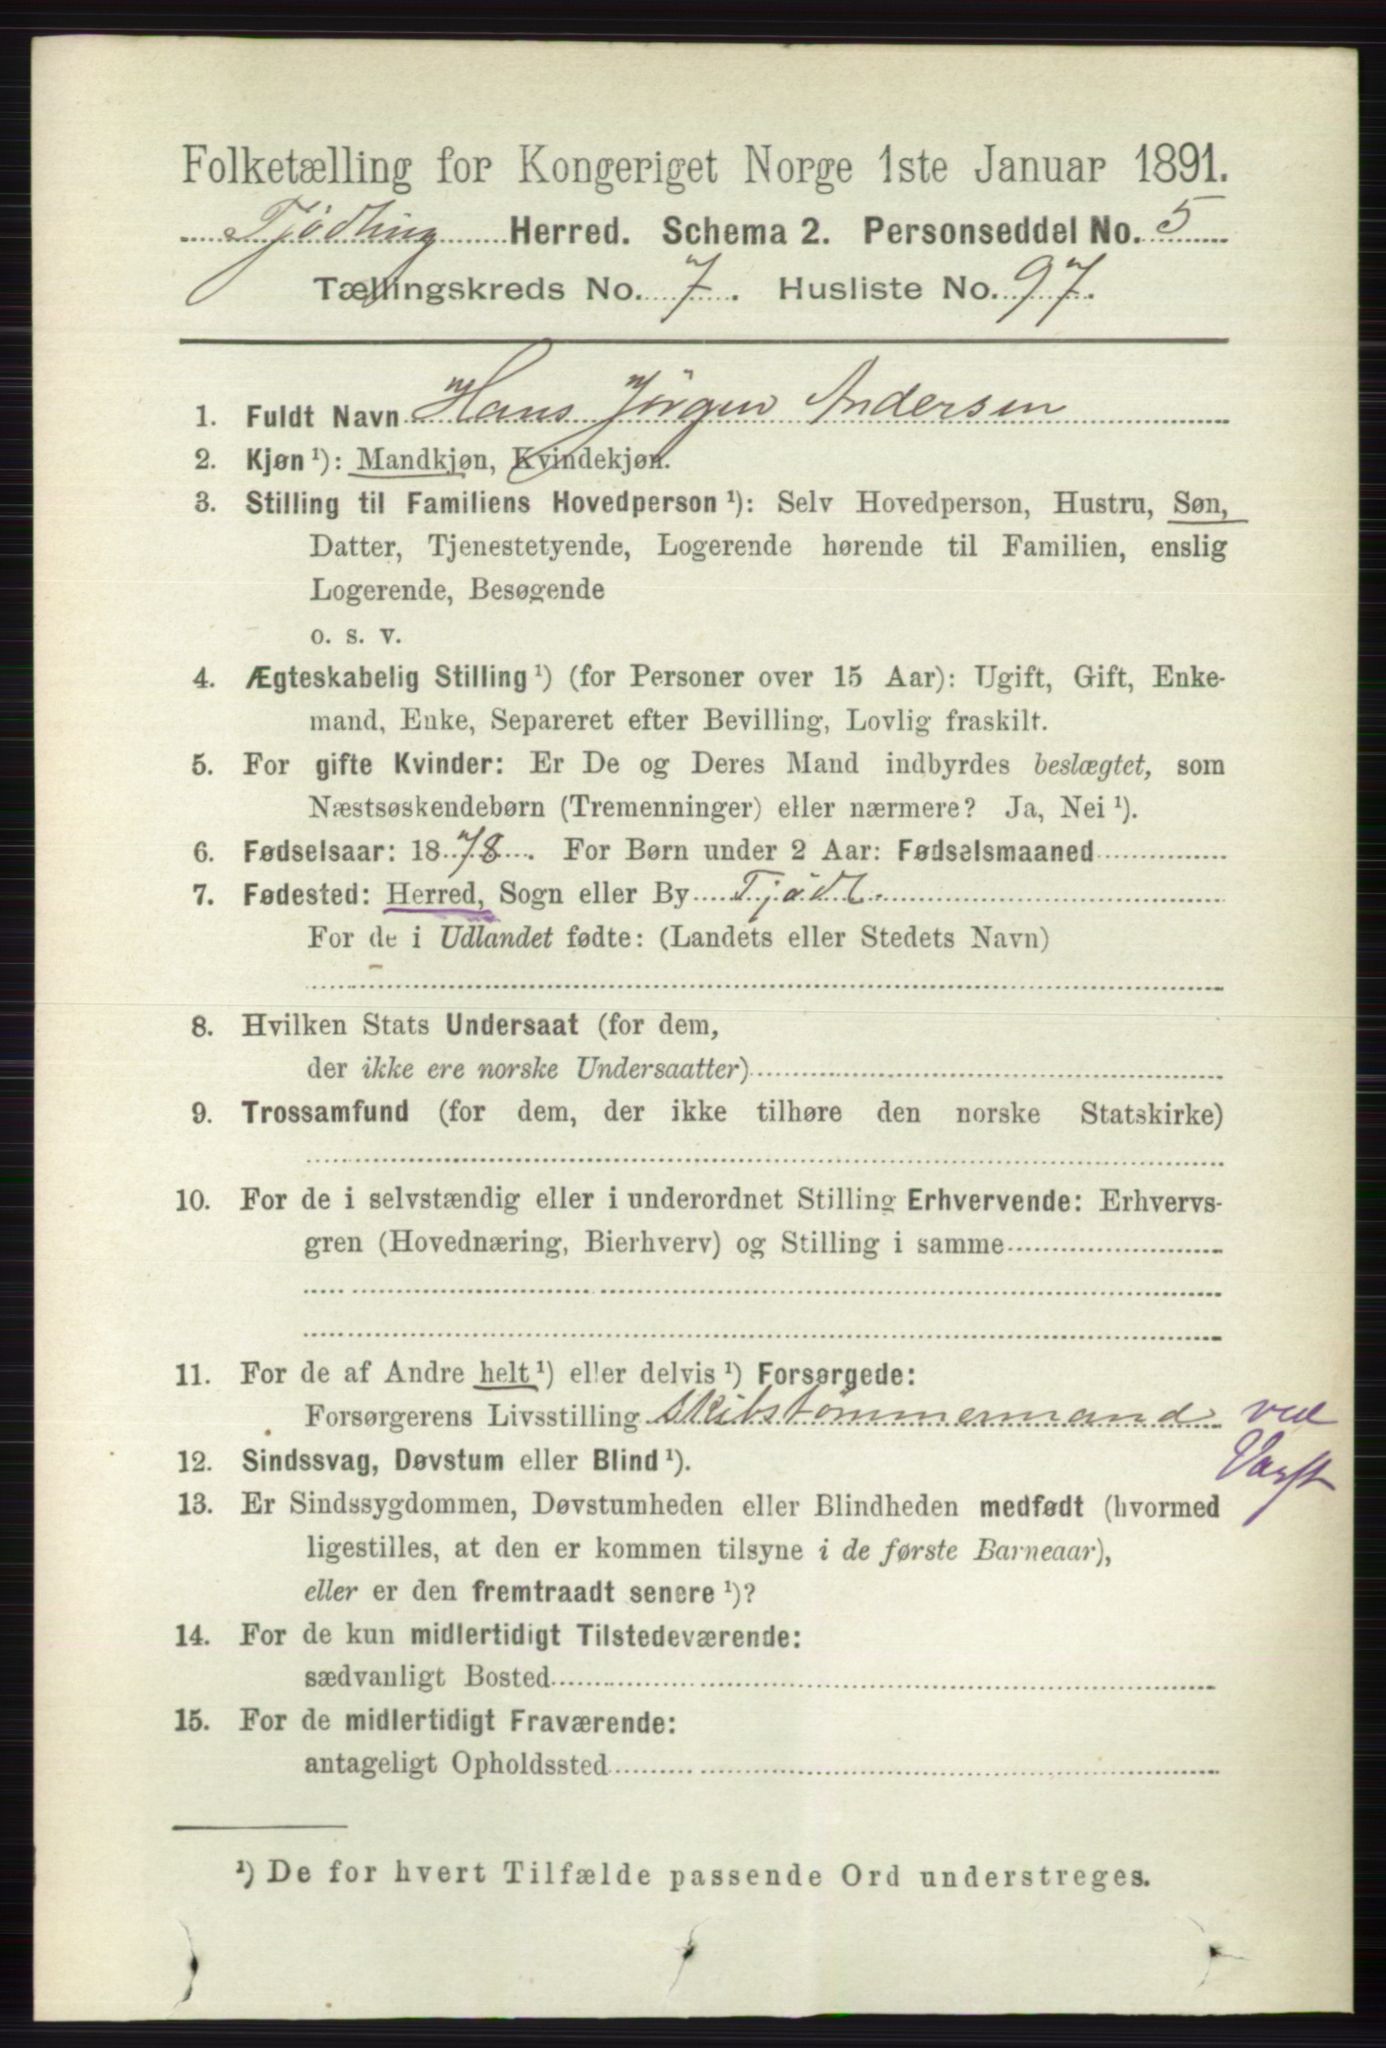 Folketælling for Kongeriget Norge 1ste Januar 1891.
Tjödling Herred. Schema 2. Personseddel No. 5
Tællingskreds No. 7. Husliste No. 97.
1. Fuldt Navn Hans Jörgen Andersen
2. Kjøn ¹): Mandkjøn, Kvindekjøn.
3. Stilling til Familiens Hovedperson ¹): Selv Hovedperson, Hustru, Søn,
Datter, Tjenestetyende, Logerende hørende til Familien, enslig
Logerende, Besøgende
o. s. v.
4. Ægteskabelig Stilling ¹) (for Personer over 15 Aar): Ugift, Gift, Enke-
mand, Enke, Separeret efter Bevilling, Lovlig fraskilt.
5. For gifte Kvinder: Er De og Deres Mand indbyrdes beslægtet, som
Næstsøskendebørn (Tremenninger) eller nærmere? Ja, Nei ¹).
6. Fødselsaar: 1878. For Børn under 2 Aar: Fødselsmaaned
7. Fødested: Herred, Sogn eller By Tjödl.
For de i Udlandet fødte: (Landets eller Stedets Navn)
8. Hvilken Stats Undersaat (for dem,
der ikke ere norske Undersaatter)
9. Trossamfund (for dem, der ikke tilhøre den norske Statskirke)
10. For de i selvstændig eller i underordnet Stilling Erhvervende: Erhvervs-
gren (Hovednæring, Bierhverv) og Stilling i samme
11. For de af Andre helt ¹) eller delvis ¹) Forsørgede:
Forsørgerens Livsstilling Skibstömmermand ved
Værft
12. Sindssvag, Døvstum eller Blind ¹).
13. Er Sindssygdommen, Døvstumheden eller Blindheden medfødt (hvormed
ligestilles, at den er kommen tilsyne i de første Barneaar),
eller er den fremtraadt senere ¹)?
14. For de kun midlertidigt Tilstedeværende:
sædvanligt Bosted
15. For de midlertidigt Fraværende:
antageligt Opholdssted
¹) De for hvert Tilfælde passende Ord understreges.